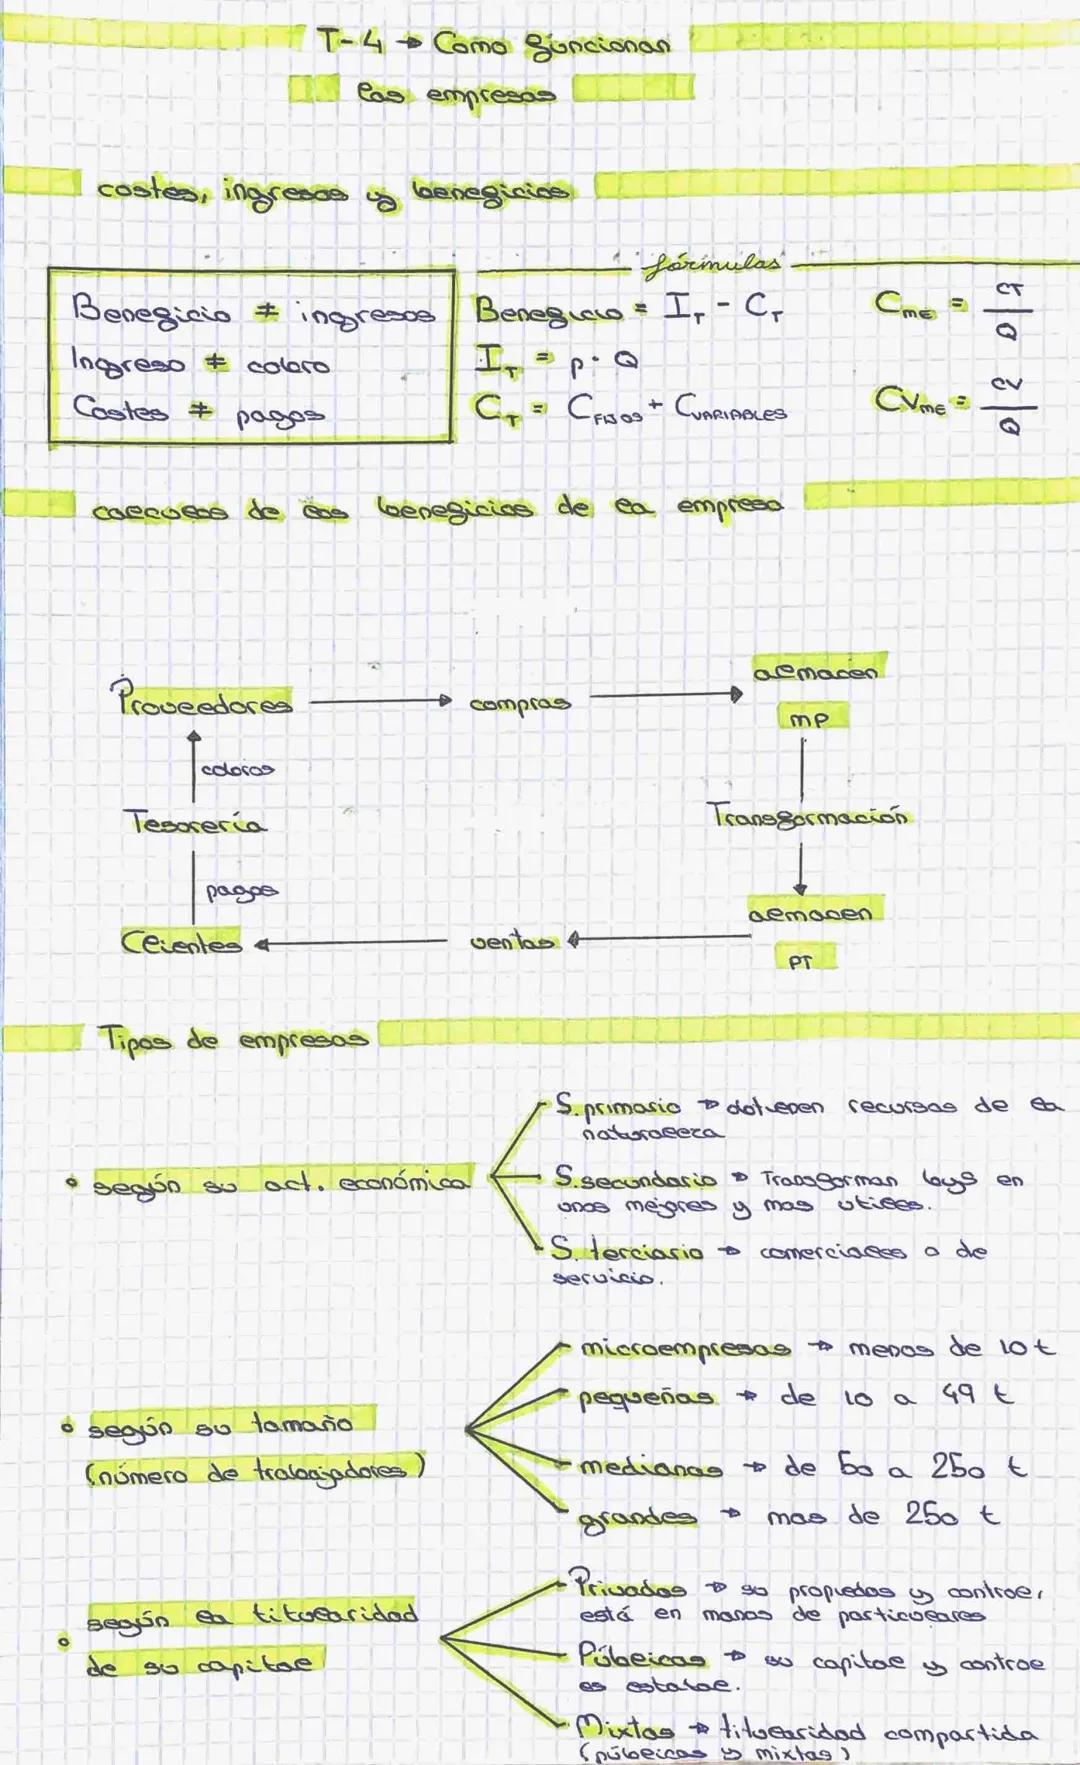 T-4 → Como funcionan
las empresas
costes, ingresos y beneficios
Beneficio ≠ ingresos
Ingreso ≠ cobro
Costes ≠ pagos
fórmulas
Beneficio = I_T - C_T
I_T = p · Q
C_T = C_FIJOS + C_VARIABLES
C_me = CT / Q
CV_me = CV / Q
calculos de los beneficios de la empresa
Proveedores → compras → almacen
MP
cobros
Tesorería
Transformación
pagos
almacen
Clientes ← ventas ←
PT
Tipos de empresas
• según su act. económica
S. primario → obtienen recursos de la
naturaleza
S. secundario → Transforman bys en
unos mejores y mas utiles.
S. terciario → comerciales o de
servicio.
• según su tamaño
(número de trabajadores)
microempresas → menos de 10 t
pequeñas → de 10 a 49 t
medianas → de 50 a 250 t
grandes → mas de 250 t
• según la titularidad
de su capital
Privadas → su propiedas y control,
está en manos de particulares
Públicas → su capital y control
es estatal.
Mixtas → titularidad compartida
(públicas y mixtas)